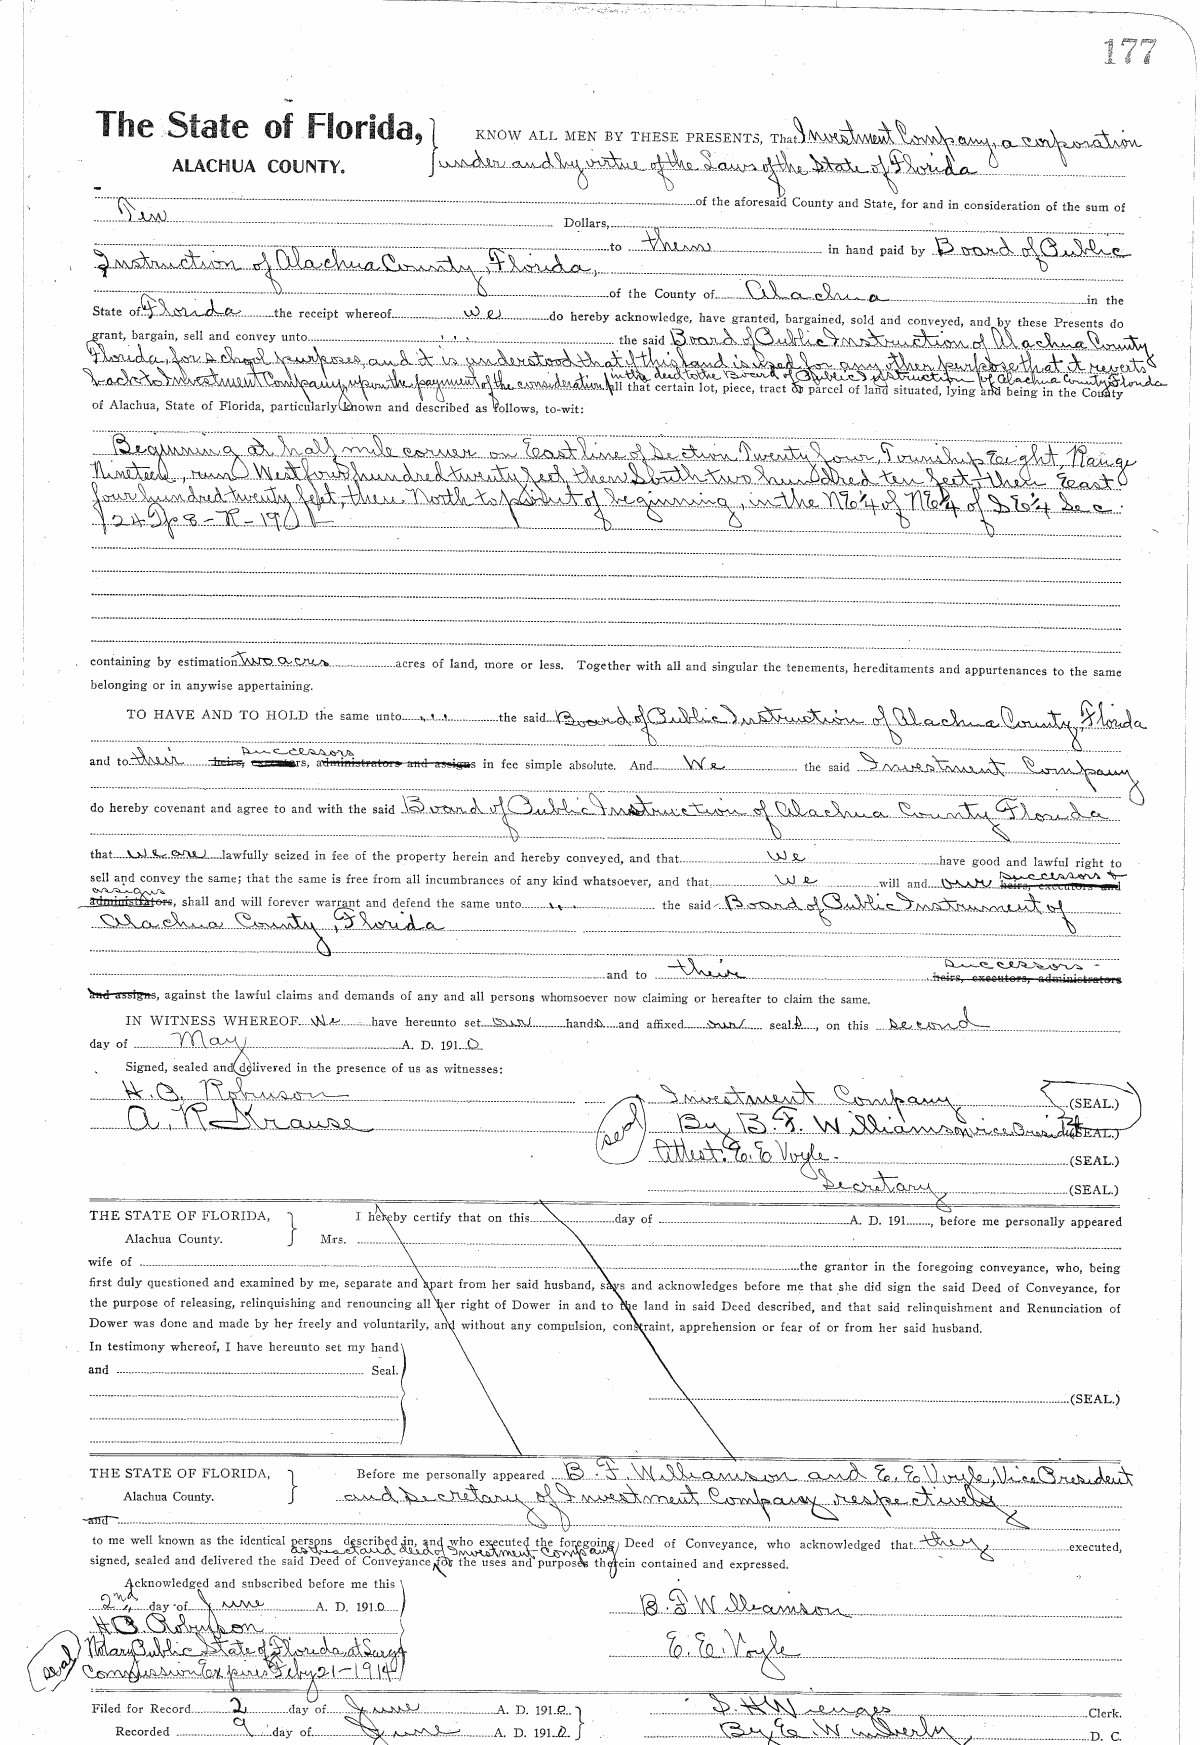 177
The State of Florida,
ALACHUA COUNTY.
KNOW ALL MEN BY THESE PRESENTS, That Investment Company, a corporation
under and by virtue of the Laws of the State of Florida
of the aforesaid County and State, for and in consideration of the sum of
Ten Dollars,
to them in hand paid by Board of Public
Instruction of Alachua County, Florida,
of the County of Alachua in the
State of Florida the receipt whereof we do hereby acknowledge, have granted, bargained, sold and conveyed, and by these Presents do
grant, bargain, sell and convey unto the said Board of Public Instruction of Alachua County
Florida, for school purposes, and it is understood that if this land is used for any other purpose that it reverts
in the deed to the Board of Public Instruction of Alachua County Florida
back to Investment Company, upon the payment of the consideration, all that certain lot, piece, tract or parcel of land situated, lying and being in the County
of Alachua, State of Florida, particularly known and described as follows, to-wit:
Beginning at half mile corner on East line of Section Twenty four, Township Eight, Range
Nineteen, run West four hundred twenty feet then South two hundred ten feet, then East
four hundred twenty feet, then North to point of beginning, in the NE¼ of NE¼ of SE¼ Sec.
24 Tp 8 - R - 19
containing by estimation two acres acres of land, more or less. Together with all and singular the tenements, hereditaments and appurtenances to the same
belonging or in anywise appertaining.
TO HAVE AND TO HOLD the same unto the said Board of Public Instruction of Alachua County, Florida
successors
and to their heirs, executors, administrators and assigns in fee simple absolute. And We the said Investment Company
do hereby covenant and agree to and with the said Board of Public Instruction of Alachua County Florida
that we are lawfully seized in fee of the property herein and hereby conveyed, and that we have good and lawful right to
sell and convey the same; that the same is free from all incumbrances of any kind whatsoever, and that we will and our successors & heirs, executors and
assigns
administrators, shall and will forever warrant and defend the same unto the said Board of Public Instrument of
Alachua County, Florida
successors
and to their heirs, executors, administrators
and assigns, against the lawful claims and demands of any and all persons whomsoever now claiming or hereafter to claim the same.
IN WITNESS WHEREOF We have hereunto set our hands and affixed our seals, on this second
day of May A. D. 1910.
Signed, sealed and delivered in the presence of us as witnesses:
H. O. Robinson
A. R. Krause
Investment Company (SEAL.)
seal
By B. F. Williamson vice President (SEAL.)
Attest: E. E. Voyle. (SEAL.)
Secretary (SEAL.)
THE STATE OF FLORIDA,
Alachua County.
I hereby certify that on this day of A. D. 191 , before me personally appeared
Mrs.
wife of the grantor in the foregoing conveyance, who, being
first duly questioned and examined by me, separate and apart from her said husband, says and acknowledges before me that she did sign the said Deed of Conveyance, for
the purpose of releasing, relinquishing and renouncing all her right of Dower in and to the land in said Deed described, and that said relinquishment and Renunciation of
Dower was done and made by her freely and voluntarily, and without any compulsion, constraint, apprehension or fear of or from her said husband.
In testimony whereof, I have hereunto set my hand
and Seal.
(SEAL.)
THE STATE OF FLORIDA,
Alachua County.
Before me personally appeared B. F. Williamson and E. E. Voyle, Vice President
and Secretary of Investment Company respectively
and
to me well known as the identical persons described in, and who executed the foregoing Deed of Conveyance, who acknowledged that they executed,
as the act and deed of Investment Company
signed, sealed and delivered the said Deed of Conveyance for the uses and purposes therein contained and expressed.
Acknowledged and subscribed before me this
2nd, day of June A. D. 1910
H. O. Robinson
Notary Public State of Florida, at Large
seal
Commission Expires Feby 21-1914
B. F Williamson
E. E. Voyle
Filed for Record 2 day of June A. D. 1910.
Recorded 9 day of June A. D. 1910.
S. H Wienges Clerk.
By E. Wimberly D. C.